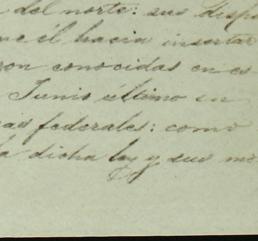 del norte: sus dispo
ne él hacia insertar
ron conocidas en es
Junio último en
as federales: como
a dicha ley y sus mo